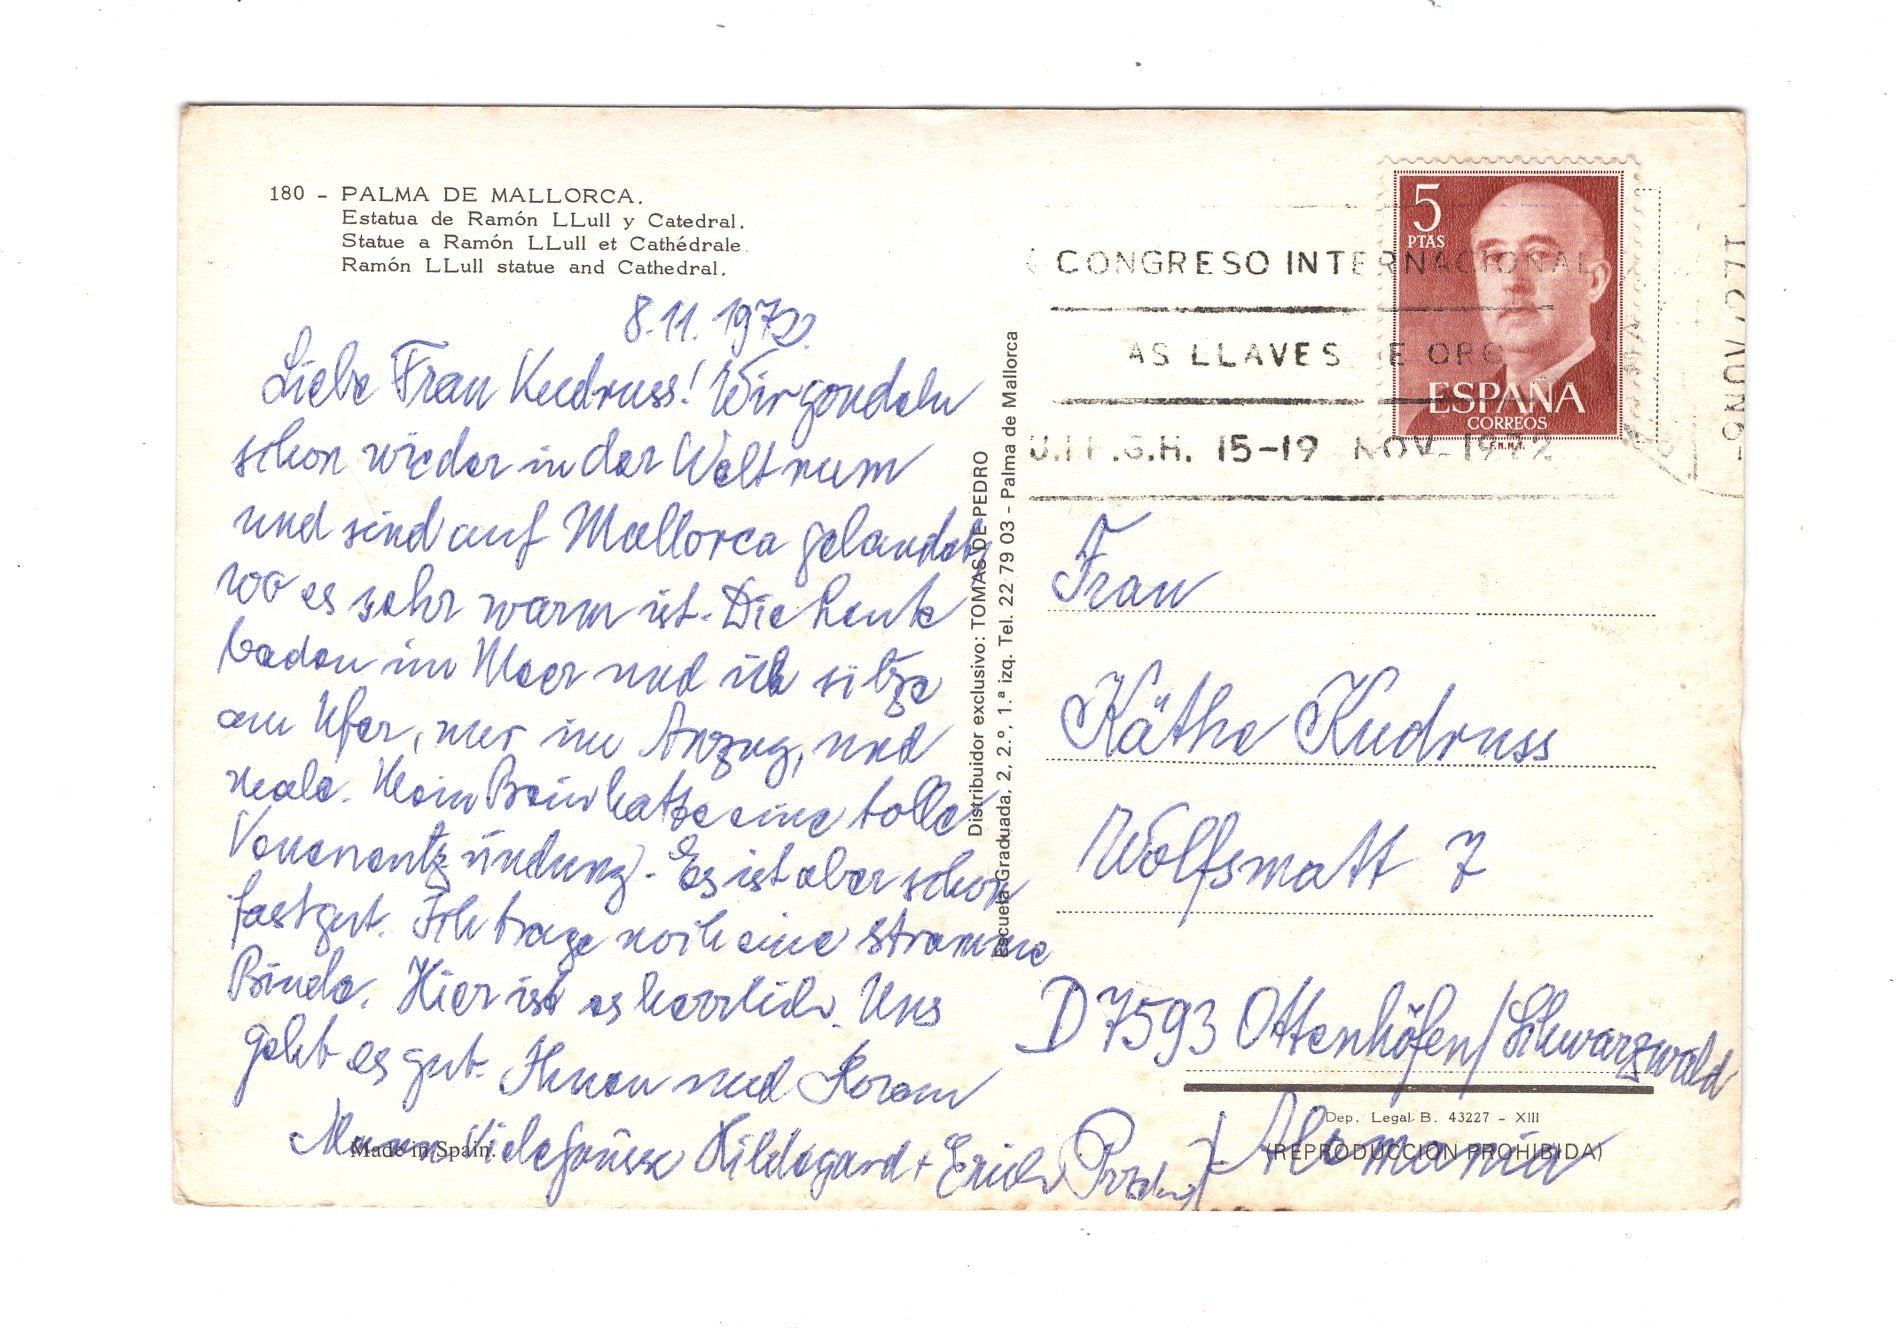 180 - PALMA DE MALLORCA.
Estatua de Ramón LLull y Catedral.
Statue a Ramón LLull et Cathédrale.
Ramón LLull statue and Cathedral.
8.11.1972.
Liebe Frau Kudruss! Wir gondeln
schon wieder in der Welt rum
und sind auf Mallorca gelandet,
wo es sehr warm ist. Die Leute
baden im Meer und ich sitze
am Ufer, nur im Anzug, und
male. Mein Bein hatte eine tolle
Venenentzündung. Es ist aber schon
fast gut. Ich trage noch eine stramme
Binde. Hier ist es herrlich. Uns
geht es gut. Ihnen und Ihrem
Mann viele Grüsse Hildegard + Erich
Made in Spain.
Distribuidor exclusivo: TOMAS DE PEDRO
Escuela Graduada, 2, 2.º, 1.ª izq. Tel. 22 79 03 - Palma de Mallorca
CONGRESO INTERNACIONAL
AS LLAVES DE ORO
U.I.P.G.H. 15-19 NOV. 1972
5
PTAS
ESPAÑA
CORREOS
F.N.M.T.
-9 NOV.72 17
Frau
Käthe Kudruss
Wolfsmatt 7
D 7593 Ottenhöfen/Schwarzwald
Alemania
Dep. Legal B. 43227 - XIII
(REPRODUCCION PROHIBIDA)